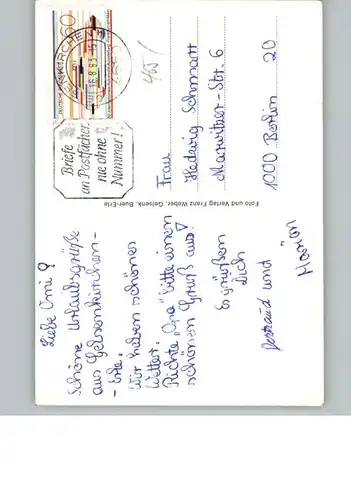 Liebe Omi!
Schöne Urlaubsgrüße
aus Gelsenkirchen-
- Erle.
Wir haben schönes
Wetter.
Richte "Opa" bitte einen
schönen Gruß aus!
Es grüßen
Dich
und
Marion
Foto und Verlag Franz Weber, Gelsenk. Buer-Erle
Briefe
an Postfächer
nie ohne
Nummer!
60
465/
Frau
Hedwig Schmatt
Marwitzer-Str. 6
1000 Berlin 20